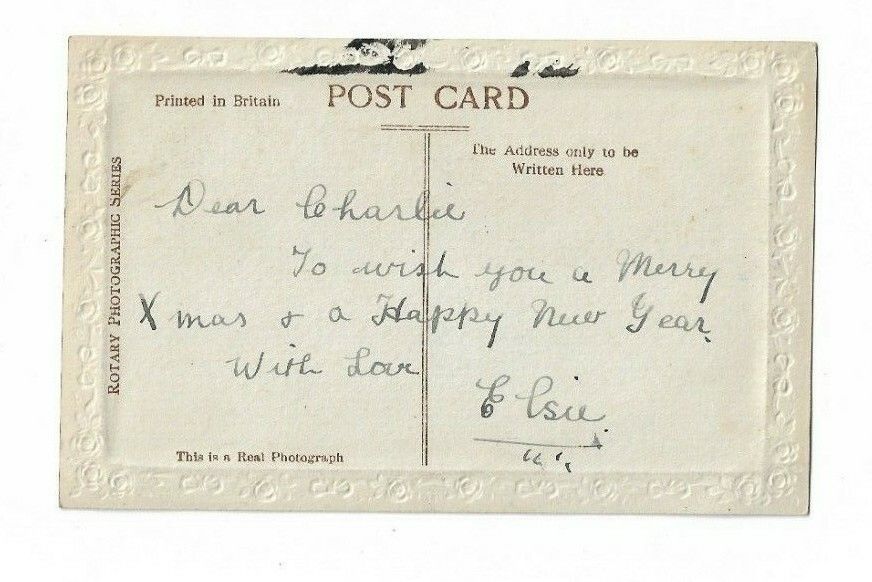 Printed in Britain
POST CARD
The Address only to be
Written Here
ROTARY PHOTOGRAPHIC SERIES
Dear Charlie
To wish you a Merry
Xmas & a Happy New Year.
With Love
Elsie
This is a Real Photograph